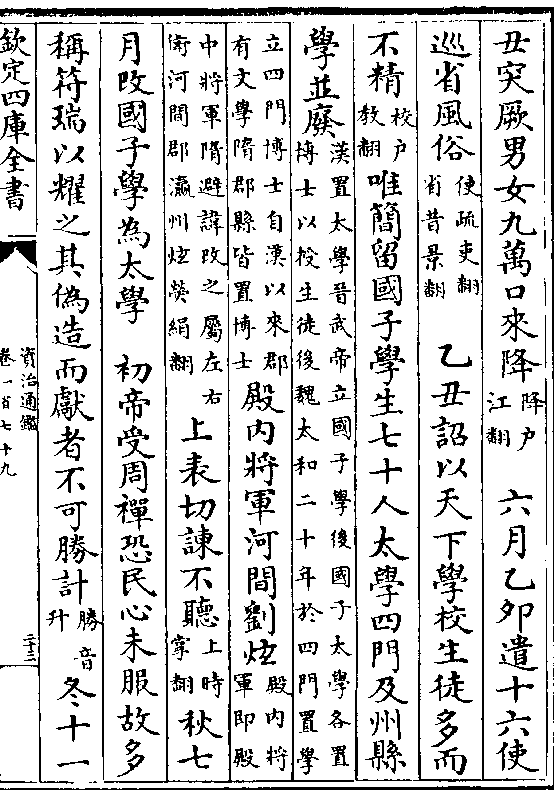 丑突厥男女九萬口來降降户江翻 六月乙卯遣十六使
巡省風俗使疏吏翻省昔景翻 乙丑詔以天下學校生徒多而
不精校户教翻唯簡留國子學生七十人太學四門及州縣
學並廢漢置太學晉武帝立國子學後國子太學各置博士以授生徒後魏太和二十年於四門置學
立四門博士自漢以來郡有文學隋郡縣皆置博士殿内將軍河間劉炫殿内將軍即殿
中將軍隋避諱改之屬左右衛河間郡瀛州炫熒絹翻上表切諫不聽上時掌翻秋七
月改國子學為太學 初帝受周禪恐民心未服故多
稱符瑞以耀之其偽造而獻者不可勝計勝音升冬十一
欽定四庫全書
資治通鑑
卷一百七十九
三十三